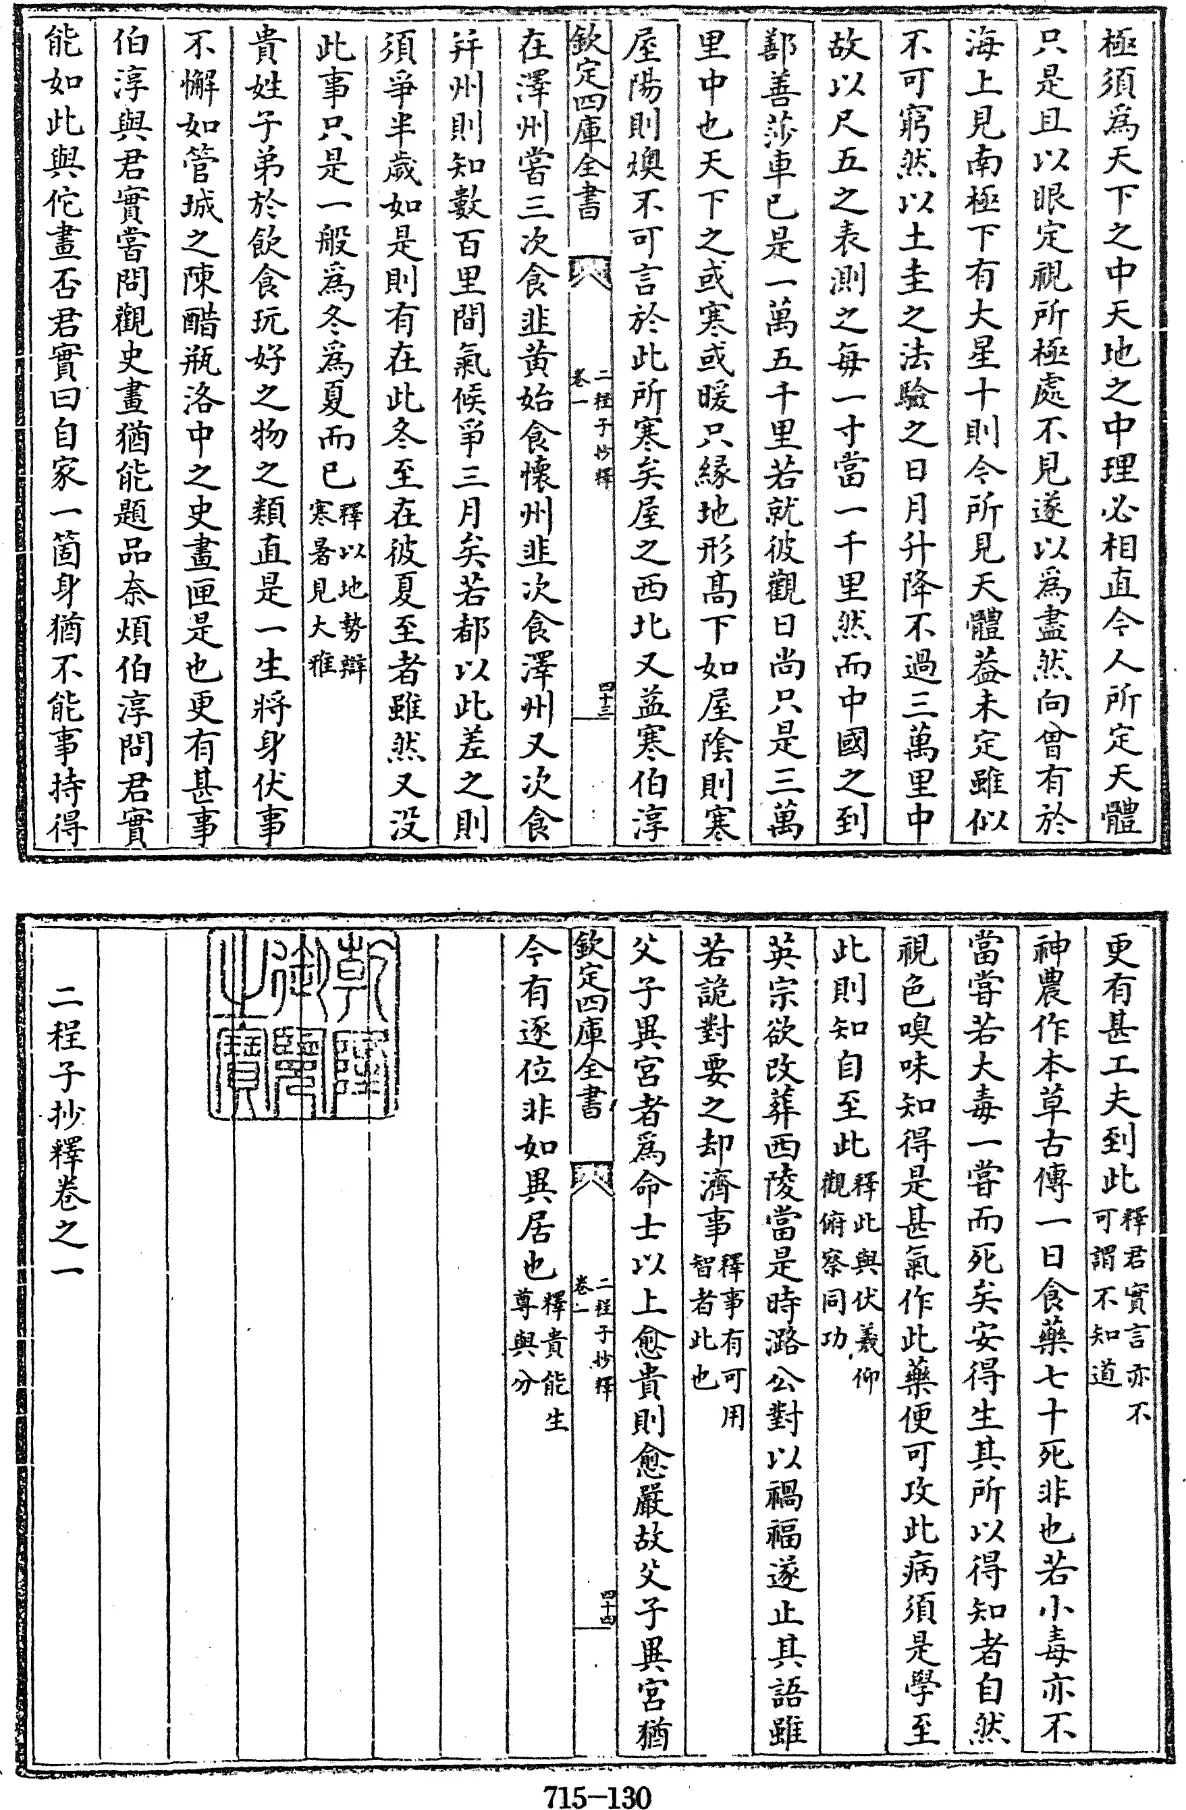 極須為天下之中天地之中理必相直今人所定天體
只是且以眼定視所極處不見遂以為盡然向曾有於
海上見南極下有大星十則今所見天體葢未定雖似
不可窮然以土圭之法驗之日月升降不過三萬里中
故以尺五之表測之每一寸當一千里然而中國之到
鄯善莎車已是一萬五千里若就彼觀日尚只是三萬
里中也天下之或寒或暖只緣地形髙下如屋陰則寒
屋陽則燠不可言於此所寒矣屋之西北又益寒伯淳
欽定四庫全書
二程子抄釋
卷一
四十三
在澤州嘗三次食韭黄始食懷州韭次食澤州又次食
并州則知數百里間氣候爭三月矣若都以此差之則
須爭半歲如是則有在此冬至在彼夏至者雖然又没
此事只是一般為冬為夏而已釋以地勢辯
寒暑見大雅
貴姓子弟於飲食玩好之物之類直是一生將身伏事
不懈如管城之陳醋瓶洛中之史畫匣是也更有甚事
伯淳與君實嘗同觀史畫猶能題品奈煩伯淳問君實
能如此與佗畫否君實曰自家一箇身猶不能事持得
更有甚工夫到此釋君實言亦不
可謂不知道
神農作本草古傳一日食藥七十死非也若小毒亦不
當嘗若大毒一嘗而死矣安得生其所以得知者自然
視色嗅味知得是甚氣作此藥便可攻此病須是學至
此則知自至此釋此與伏羲仰
觀俯察同功
英宗欲改葬西陵當是時潞公對以禍福遂止其語雖
若詭對要之却濟事釋事有可用
智者此也
父子異宮者為命士以上愈貴則愈嚴故父子異宮猶
欽定四庫全書
二程子抄釋
卷一
四十四
今有逐位非如異居也釋貴能生
尊與分
乾隆御覽之寶
二程子抄釋卷之一
715-130